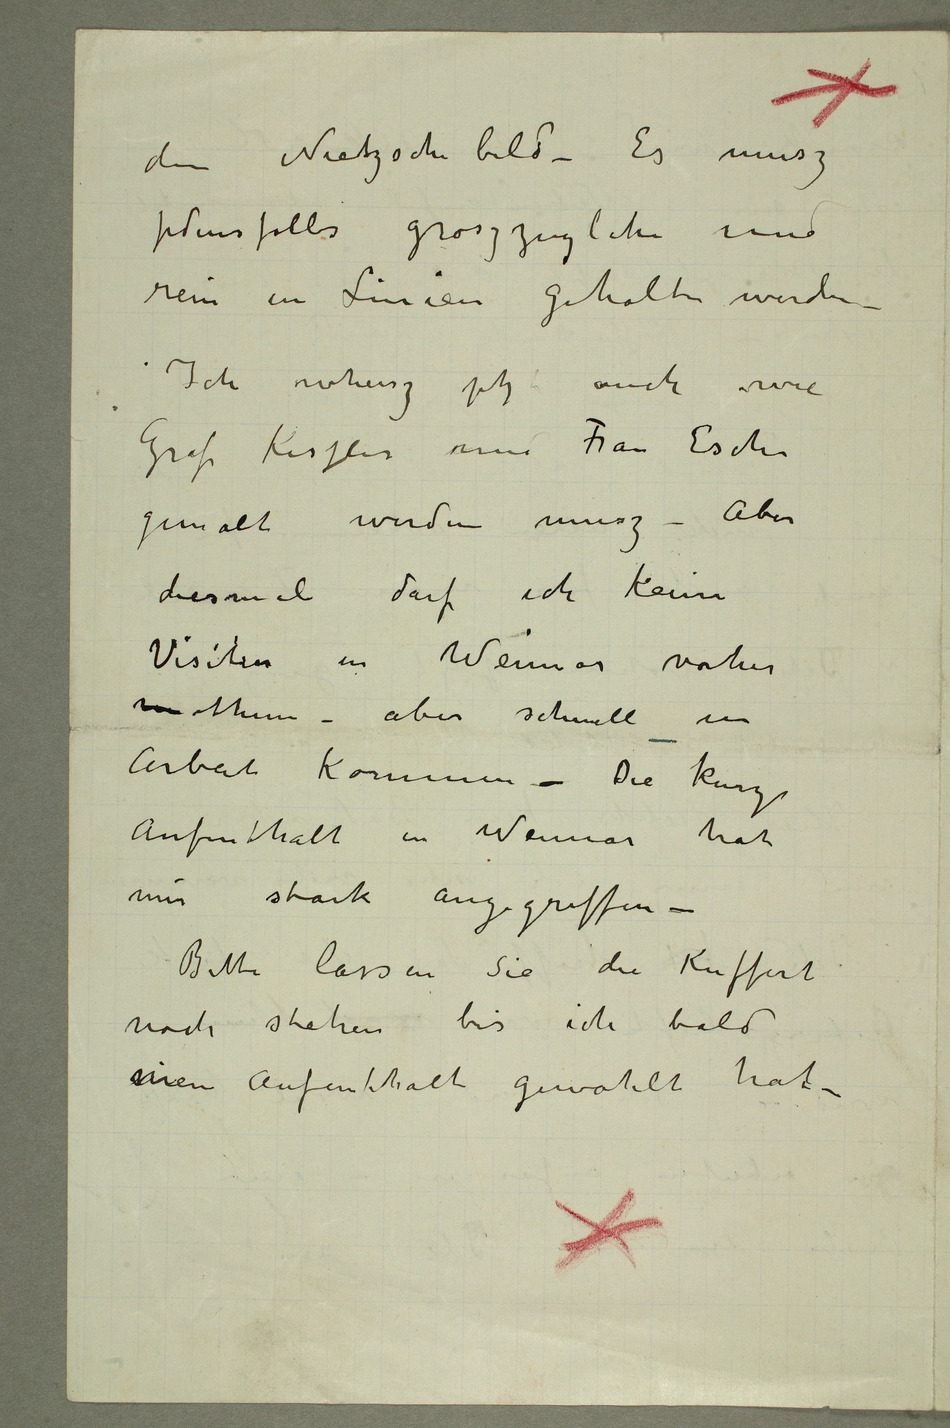 den Nietzsche bild – Es musz
jedensfalls groszzüglich und
rein in Linien gehalten werden –
Ich wheisz jetz auch wie
Graf Kessler und Frau Esche
gemalt werden musz – Aber
diesmal darf ich keine
Visiten in Weimar vorher
thun – aber schnell in
Arbeit kommen – Die kurze
Aufenthalt in Weimar hat
mir stark angegriffen –
Bitte lassen Sie die Kuffert
noch stehen bis ich bald
Aufenthalt gewählt hat –